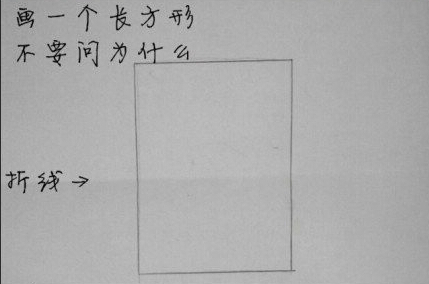 画一个长方形
不要问为什么
折线→